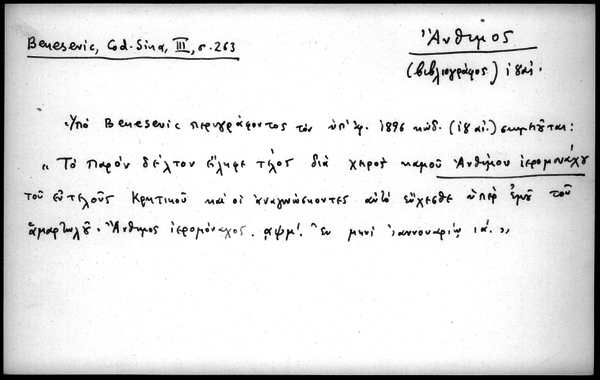 Benesevic, Cod. Sina, III, σ. 263
Ἄνθιμος
(βιβλιογράφος) ιηʹ αἰ.
Ὑπὸ Benesevic περιγράφοντος τὸν ὑπ' ἀρ. 1896 κώδ. (ιηʹ αἰ.) σημειοῦται:
« Τὸ παρὸν δέλτον εἴληφε τέλος διὰ χειρὸς καμοῦ Ἀνθίμου ἱερομονάχου
τοῦ εὐτελοῦς Κρητικοῦ καὶ οἱ ἀναγνώσκοντες αὐτὸ εὔχεσθε ὑπὲρ ἐμοῦ τοῦ
ἁμαρτωλοῦ. Ἄνθιμος ἱερομόναχος. ͵αψμʹ. ἐν μηνὶ ἰαννουαρίῳ ιά. »